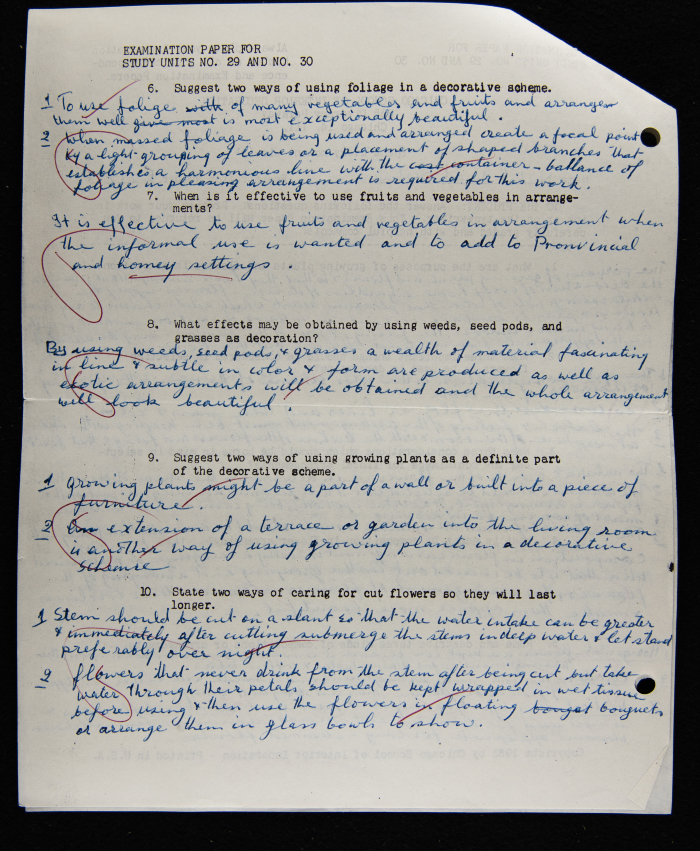 EXAMINATION PAPER FOR
STUDY UNITS NO. 29 AND NO. 30
6. Suggest two ways of using foliage in a decorative scheme.
1 To use folige with of many vegetables and fruits and arrange
them well give most is most exceptionally beautiful.
2 When massed foliage is being used and arranged create a focal point
by a light grouping of leaves or a placement of shaped branches that
establishes a harmonious line with the cost container - ballance of
foliage in pleasing arrangement is required for this work.
7. When is it effective to use fruits and vegetables in arrange-
ments?
It is effective to use fruits and vegetables in arrangement when
the informal use is wanted and to add to Pronvincial
and homey settings.
8. What effects may be obtained by using weeds, seed pods, and
grasses as decoration?
By using weeds, seed pods, & grasses a wealth of material fascinating
in line & subtle in color & form are produced as well as
exotic arrangements will be obtained and the whole arrangement
will look beautiful.
9. Suggest two ways of using growing plants as a definite part
of the decorative scheme.
1 Growing plants might be a part of a wall or built into a piece of
furniture.
2 An extension of a terrace or garden into the living room
is another way of using growing plants in a decorative
schemre
10. State two ways of caring for cut flowers so they will last
longer.
1 Stem should be cut on a slant so that the water intake can be greater
& immediately after cutting submerge the stems in deep water & let stand
preferably over night.
2 flowers that never drink from the stem after being cut but take
water through their petals should be kept wrapped in wet tissue
before using & then use the flowers in floating bouqet bouquets
or arrange them in glass bowls to show.